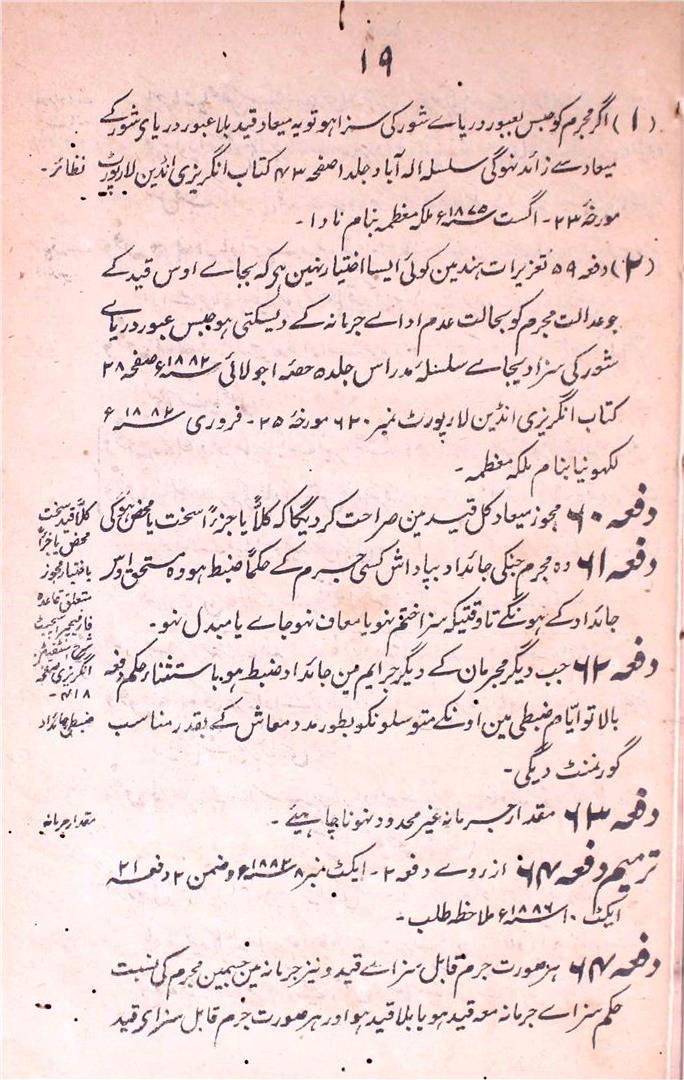 ۱۹
(۱) اگر مجرم کو حبس بعبور دریاے شور کی سزا ہو تو یہ میعاد قید بلا عبور دریای شور کے
میعاد سے زائد نہوگی سلسلہ الہ آباد جلد ۱ صفحہ ۴۳ کتاب انگریزی انڈین لا رپورٹ نظائر۔
مورخہ ۲۳۔ اگست سنہ ۱۸۷۵ء ملکہ معظمہ بنام نادا۔
(۲) دفعہ ۵۹ تعزیرات ہند مین کوئی ایسا اختیار نہین ہے کہ بجاے اوس قید کے
جو عدالت مجرم کو بحالت عدم اداے جرمانہ کے دیسکتی ہو حبس عبور دریاے
شور کی سزا دیجاے سلسلہ مدراس جلد ۵ حصہ ۱ جولائی سنہ ۱۸۸۲ء صفحہ ۲۸
کتاب انگریزی انڈین لا رپورٹ نمبر ۶۲۰ مورخہ ۲۵۔ فروری سنہ ۱۸۸۲ء
لکھونیا بنام ملکہ معظمہ۔
دفعہ ۶۰ مجوز میعاد کل قید مین صراحت کر دیگا کہ کلاً یا جزءاً سخت یا محض ہوگی
کلاً قید سخت
محض یا جزاً
دفعہ ۶۱ وہ مجرم جنکی جائداد بپاداش کسی جرم کے حکماً ضبط ہو وہ مستحق اوس
باختیار مجوز
متعلق قاعدہ
جائداد کے ہونگے تا وقتیکہ سزا ختم نہو یا معاف نہوجاے یا مبدل نہو۔
دفعہ ۶۲ جب دیگر مجرمان کے دیگر جرایم مین جائداد ضبط ہو۔ باستثناء حکم دفعہ
انگریزی صفحہ
۴۱۸۔
بالا تو ایام ضبطی مین اونکے متوسلونکو بطور مدد معاش کے بقدر مناسب
ضبطی جائداد
گورنمنٹ دیگی۔
دفعہ ۶۳ مقدار جرمانہ غیر محدود نہونا چاہیئے۔
مقدار جرمانہ
ترمیم دفعہ ۶۴ از روے دفعہ ۲۔ ایکٹ نمبر ۸ سنہ ۱۸۸۲ء و ضمن ۲ دفعہ ۲۱
ایکٹ ۱۰ سنہ ۱۸۸۶ء ملاحظہ طلب۔
دفعہ ۶۴ ہر صورت جرم قابل سزاے قید و نیز جرمانہ مین جسمین مجرم کی نسبت
حکم سزاے جرمانہ معہ قید ہو یا بلا قید ہو اور ہر صورت جرم قابل سزای قید